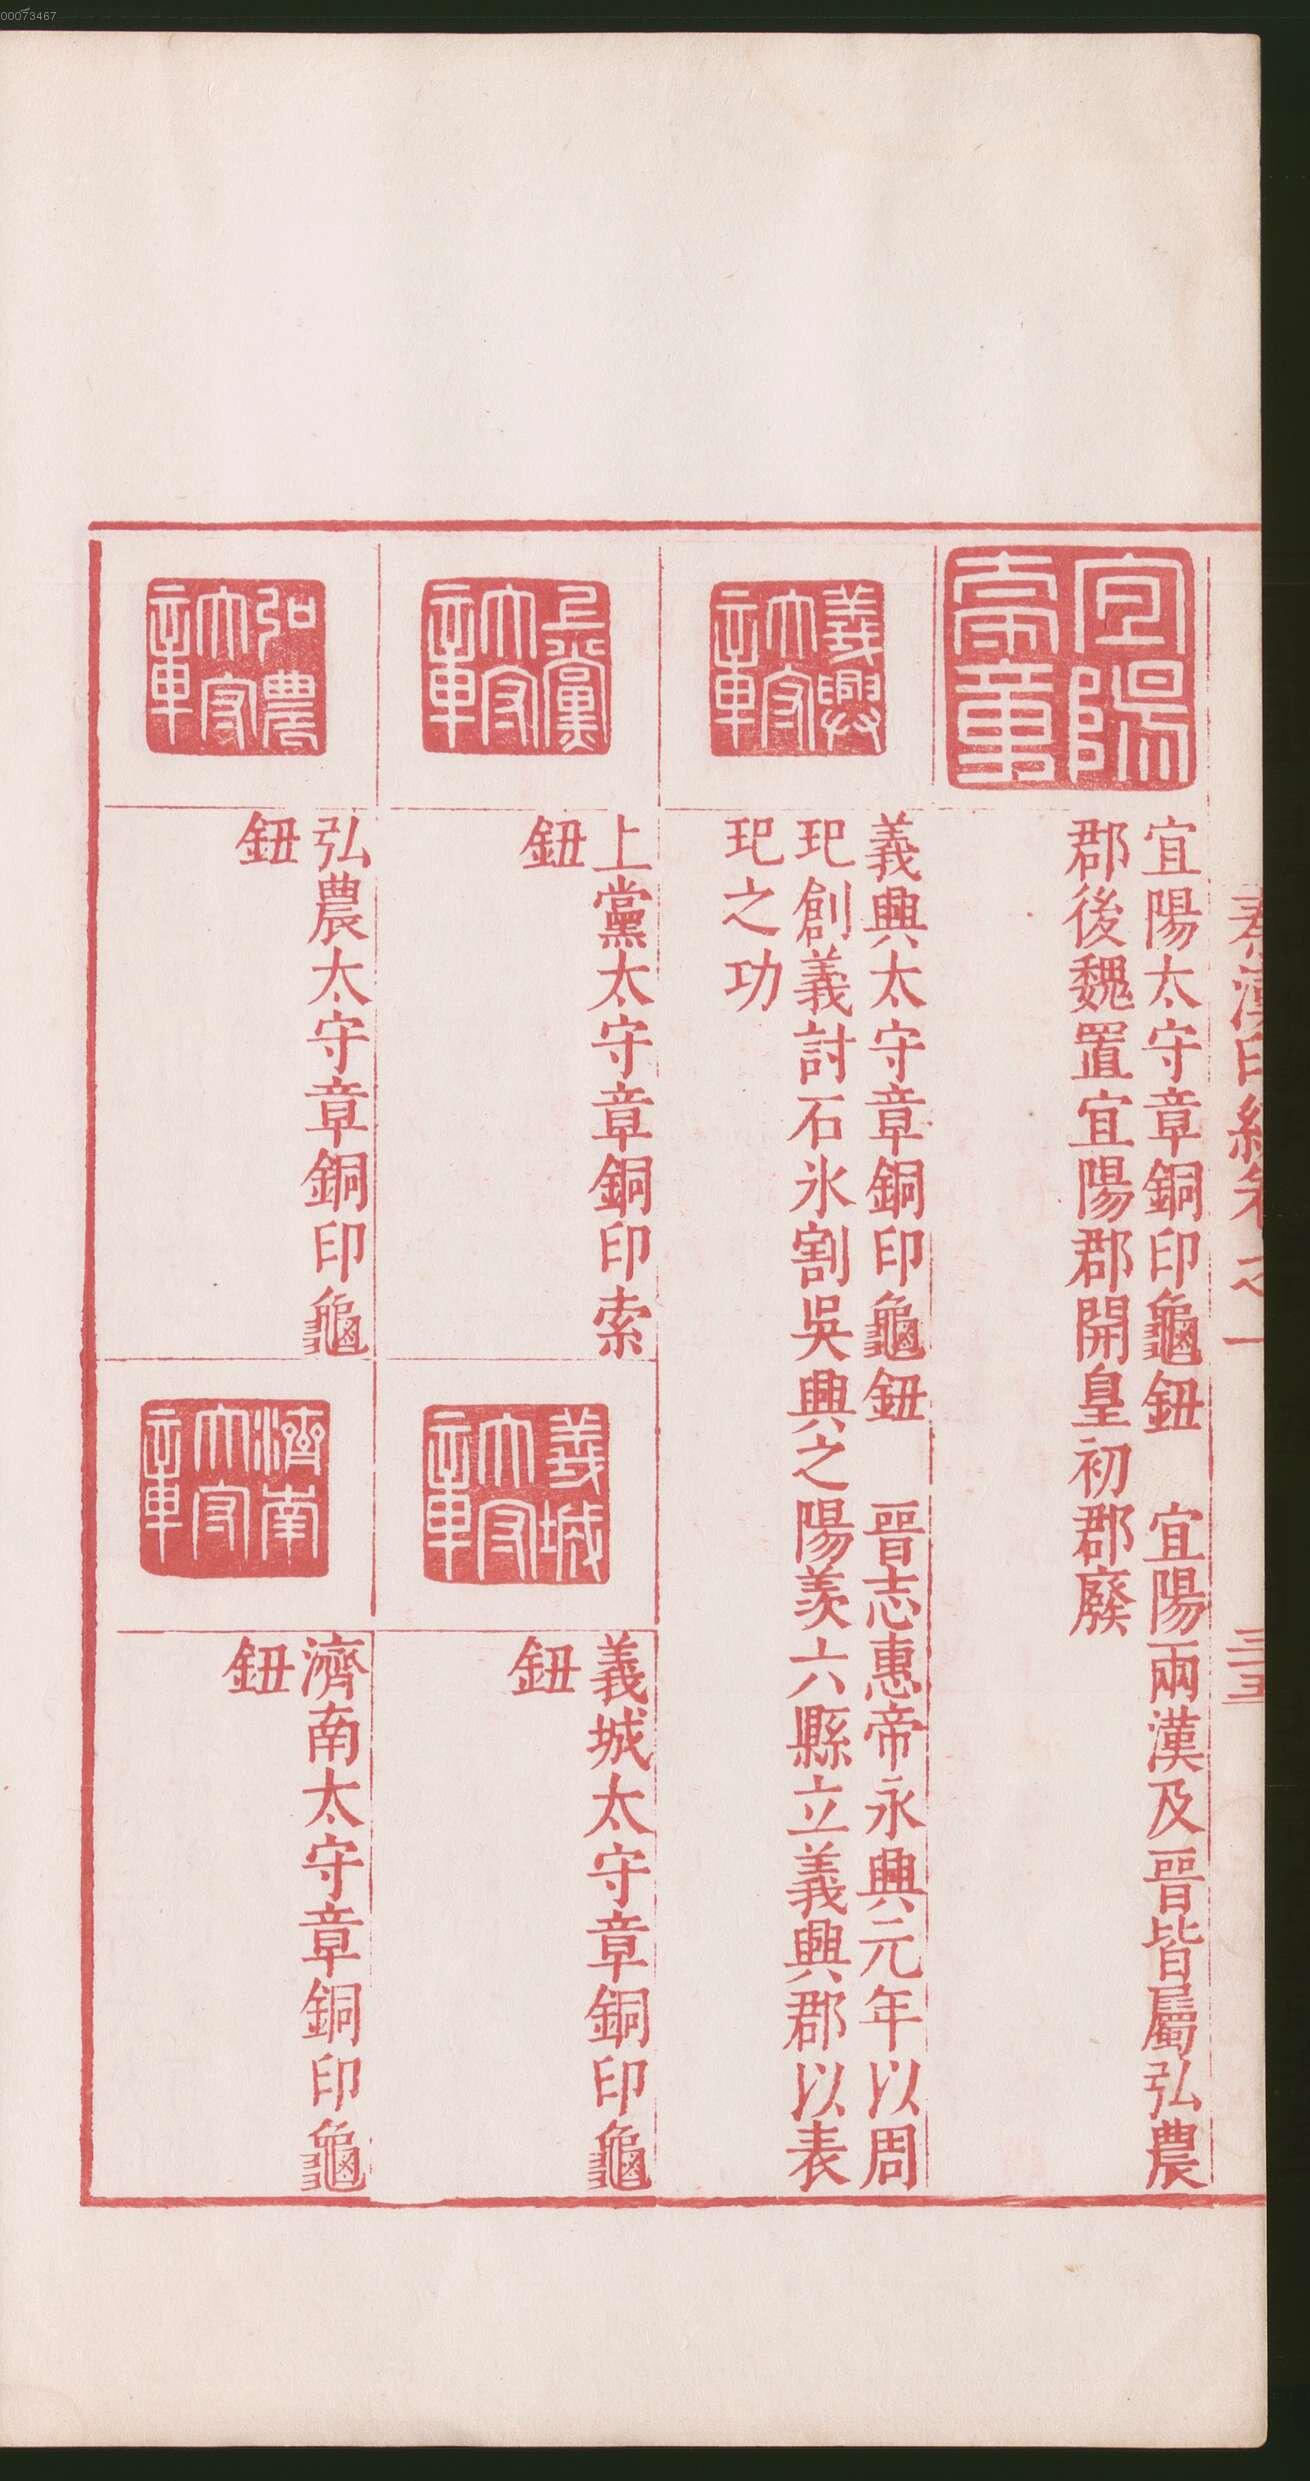 00073467
秦漢印統卷之一
三五
宜陽太守章銅印龜鈕 宜陽兩漢及晉皆屬弘農
郡後魏置宜陽郡開皇初郡廢
義興
太守
章
義興太守章銅印龜鈕 晉志惠帝永興元年以周
玘創義討石氷割吳興之陽羨六縣立義興郡以表
玘之功
上黨
太守
章
上黨太守章銅印索
鈕
義城
太守
章
義城太守章銅印龜
鈕
弘農
太守
章
弘農太守章銅印龜
鈕
濟南
太守
章
濟南太守章銅印龜
鈕